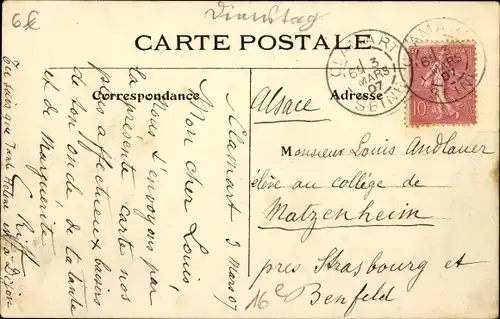 6€
Dienstag
CARTE POSTALE
Correspondance
Adresse
CLAMART
3
MARS
07
SEINE
CLAMART
MARS
07
SEINE
10c
Clamart 3 Mars 07
Mon cher Louis,
Nous t'envoyons par
la présente carte nos
plus affectueux baisers
de ton oncle de ta tante
et de Marguerite
G. Riff
Tu sais que Tante Hélène est à Dijon
Alsace
Monsieur Louis Andlauer
élève au collège de
Matzenheim
près Strasbourg et
16e Benfeld